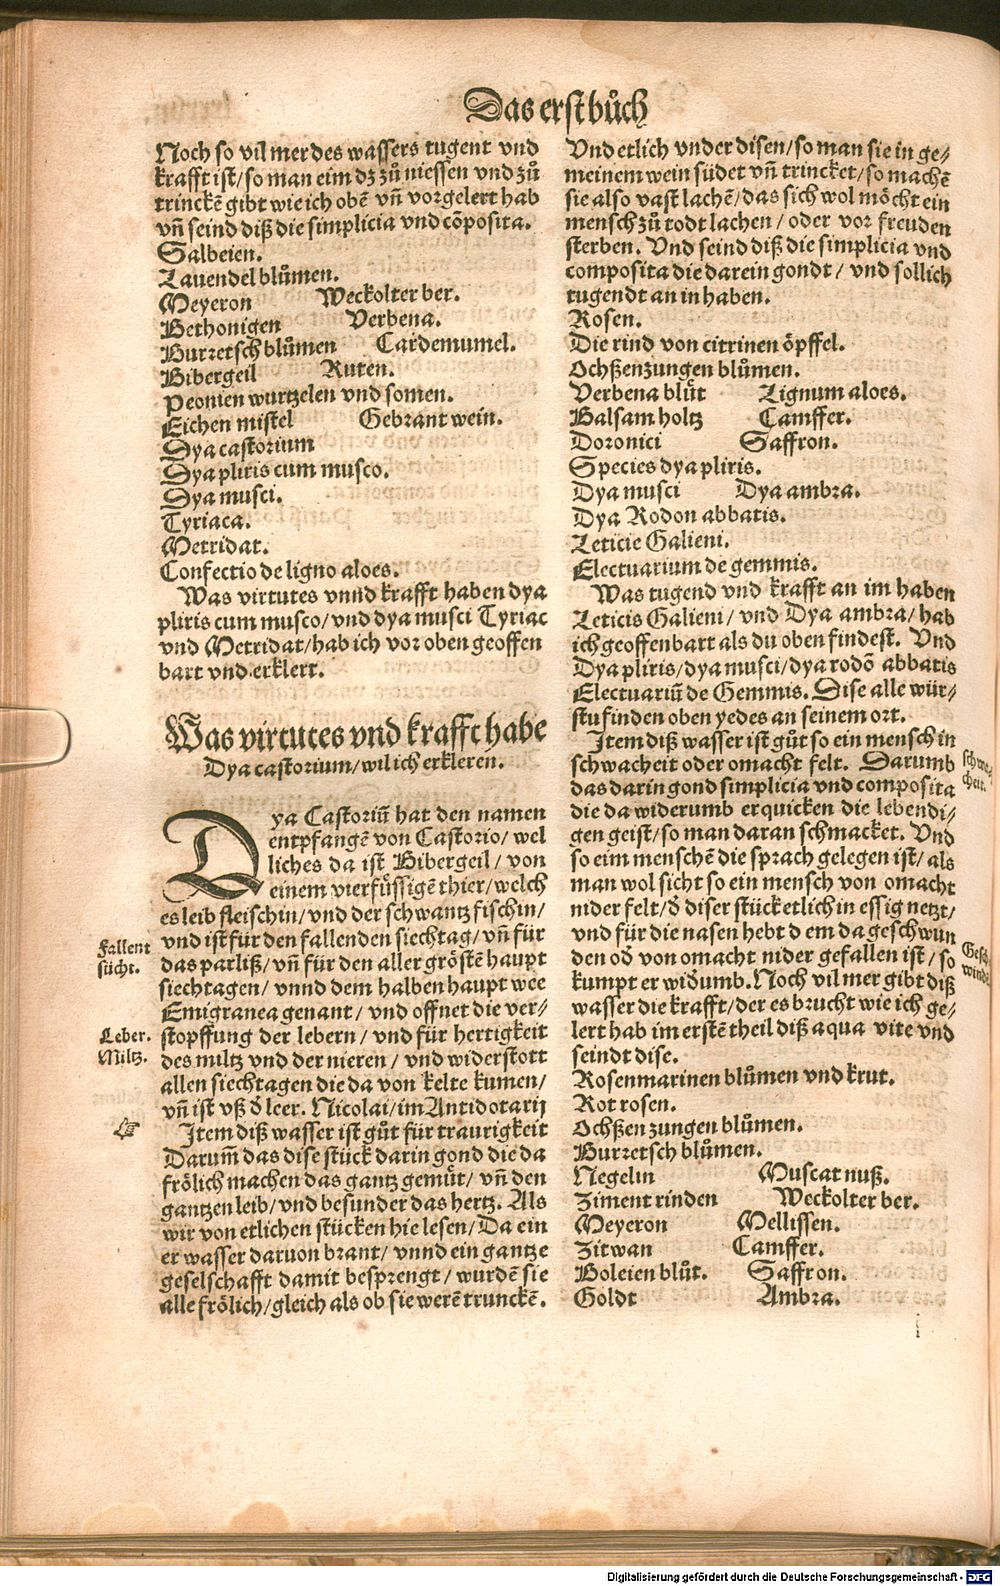 Das erst bůch
Noch so vil mer des wassers tugent vnd
krafft ist/so man eim dz zů niessen vnd zů
trinckē gibt wie ich obē vn̄ vorgelert hab
vn̄ seind diß die simplicia vnd cōposita.
Salbeien.
Lauendel blůmen.
Meyeron Weckolter ber.
Bethonigen Verbena.
Burretsch blůmen Cardemumel.
Bibergeil Ruten.
Peonien wurtzelen vnd somen.
Eichen mistel Gebrant wein.
Dya castorium
Dya pliris cum musco.
Dya musci.
Tyriaca.
Metridat.
Confectio de ligno aloes.
Was virtutes vnnd krafft haben dya
pliris cum musco/vnd dya musci Tyriac
vnd Metridat/hab ich vor oben geoffen
bart vnd erklert.
Was virtutes vnd krafft habe
Dya castorium/wil ich erkleren.
Dya Castoriū hat den namen
entpfangē von Castorio/wel
liches da ist Bibergeil/von
einem vierfüssigē thier/welch
es leib fleischin/vnd der schwantz fischin/
vnd ist für den fallenden siechtag/vn̄ für
das parliß/vn̄ für den aller gröstē haupt
siechtagen/vnnd dem halben haupt wee
Emigranea genant/vnd offnet die ver⸗
stopffung der lebern/vnd für hertigkeit
des miltz vnd der nieren/vnd widerstott
allen siechtagen die da von kelte kumen/
vn̄ ist vß d̄ leer. Nicolai/im Antidotarij
Item diß wasser ist gůt für traurigkeit
Darum̄ das dise stück darin gond die da
frölich machen das gantz gemüt/vn̄ den
gantzen leib/vnd besunder das hertz. Als
wir von etlichen stücken hie lesen/Da ein
er wasser daruon brant/vnnd ein gantze
geselschafft damit besprengt/wurdē sie
alle frölich/gleich als ob sie werē trunckē.
Fallent
sücht.
Leber.
Miltz.
Vnd etlich vnder disen/so man sie in ge⸗
meinem wein südet vn̄ trincket/so machē
sie also vast lachē/das sich wol möcht ein
mensch zů todt lachen/oder vor freuden
sterben. Vnd seind diß die simplicia vnd
composita die darein gondt/vnd sollich
tugendt an in haben.
Rosen.
Die rind von citrinen öpffel.
Ochßenzungen blůmen.
Verbena blůt Lignum aloes.
Balsam holtz Camffer.
Doronici Saffron.
Species dya pliris.
Dya musci Dya ambra.
Dya Rodon abbatis.
Leticie Galieni.
Electuarium de gemmis.
Was tugend vnd krafft an im haben
Leticis Galieni/vnd Dya ambra/hab
ich geoffenbart als du oben findest. Vnd
Dya pliris/dya musci/dya rodō abbatis
Electuariū de Gemmis. Dise alle wür⸗
stu finden oben yedes an seinem ort.
Item diß wasser ist gůt so ein mensch in
schwacheit oder omacht felt. Darumb
das darin gond simplicia vnd composita
die da widerumb erquicken die lebendi⸗
gen geist/so man daran schmacket. Vnd
so eim menschē die sprach gelegen ist/als
man wol sicht so ein mensch von omacht
nider felt/d̄ diser stück etlich in essig netzt/
vnd für die nasen hebt dem da geschwun
den od̄ von omacht nider gefallen ist/so
kumpt er wid̄umb. Noch vil mer gibt diß
wasser die krafft/der es brucht wie ich ge⸗
lert hab im erstē theil diß aqua vite vnd
seindt dise.
Rosenmarinen blůmen vnd krut.
Rot rosen.
Ochßen zungen blůmen.
Burretsch blůmen.
Negelin Muscat nuß.
Ziment rinden Weckolter ber.
Meyeron Mellissen.
Zitwan Camffer.
Boleien blůt. Saffron.
Goldt Ambra.
Digitalisierung gefördert durch die Deutsche Forschungsgemeinschaft - DFG